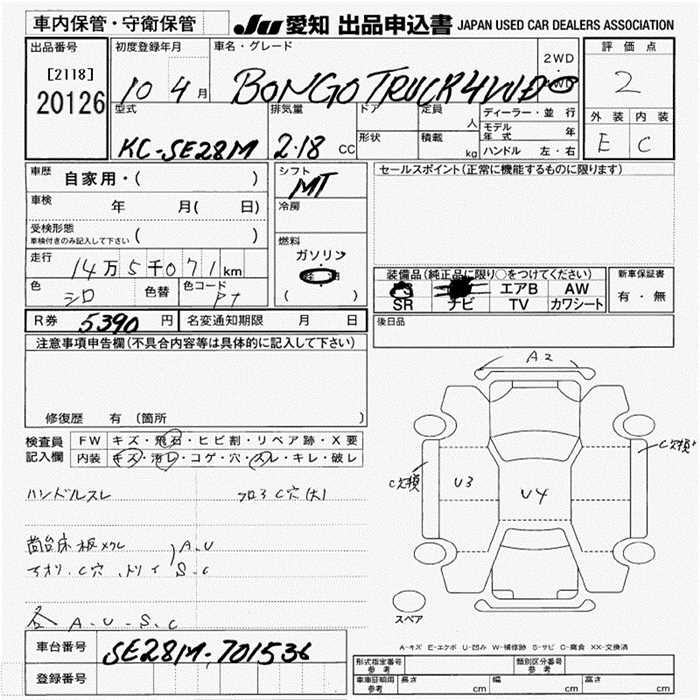 車内保管・守衛保管
JU 愛知 出品申込書 JAPAN USED CAR DEALERS ASSOCIATION
出品番号
[2118]
20126
初度登録年月
10 4月
車名・グレード
BONGO TRUCK 4WD
2WD
評価点
2
外装 内装
E C
型式
KC-SE28M
排気量
2.18 CC
ドア
定員
人
形状
積載
kg
ディーラー・並行
モデル年式 年
ハンドル 左・右
車歴 自家用・( )
車検 年 月( 日)
受検形態
車検付きのみ記入して下さい ( )
走行 14万5千071km
色 シロ 色替 色コード
シフト
MT
冷房
燃料
ガソリン
( )
セールスポイント(正常に機能するものに限ります)
装備品(純正品に限り○をつけてください)
エアB AW
SR ナビ TV カワシート
新車保証書
有・無
後日品
R券 5390円 名変通知期限 月 日
注意事項申告欄(不具合内容等は具体的に記入して下さい)
修復歴 有(箇所 )
検査員
記入欄
FW キズ・飛石・ヒビ割・リペア跡・X要
内装 キズ・汚レ・コゲ・穴・スレ・キレ・破レ
ハンドルスレ フロアC穴(大)
A.U
アオリ.C穴 S.C
各 A-U-S-C
A2
C欠損
U3
U4
C欠損
スペア
A-キズ E-エクボ U-凹み W-補修跡 S-サビ C-腐食 XX-交換済
車台番号 SE28M-701536
登録番号
形式指定番号
参考
類別区分番号
参考
車庫証明用
参考
長さ cm 幅 cm 高さ cm